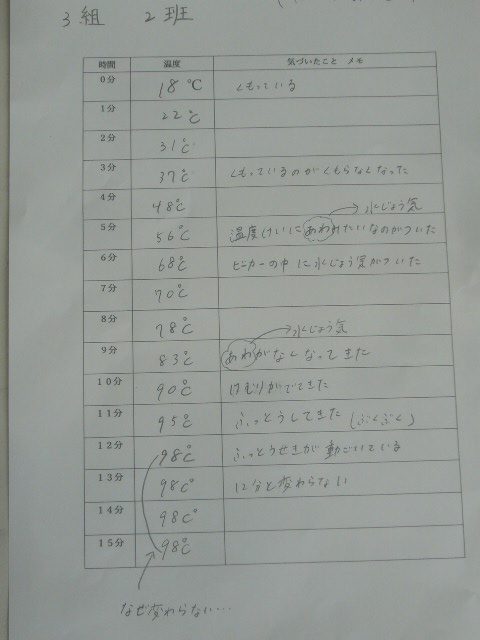 3組 2班
時間 温度 気づいたこと メモ
0分 18℃ くもっている
1分 22℃
2分 31℃
3分 37℃ くもっているのがくもらなくなった
4分 48℃
→水じょう気
5分 56℃ 温度けいにあわみたいなのがついた
6分 68℃ ビーカーの中に水じょう気がついた
7分 70℃
8分 78℃
→水じょう気
9分 83℃ あわがなくなってきた
10分 90℃ けむりがでてきた
11分 95℃ ふっとうしてきた(ぶくぶく)
12分 98℃ ふっとうせきが動いている
13分 98℃ 12分と変わらない
14分 98℃
15分 98℃
なぜ変わらない…